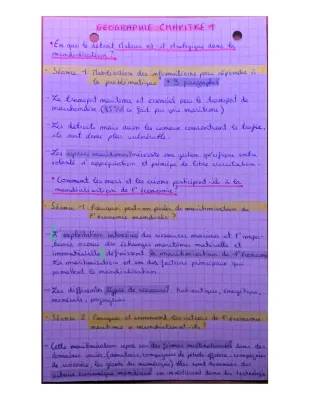 GEOGRAPHIE CHAPITRE 1
En quoi le détroit est-il stratégique dans la
mondialisation ?
Séance 1 Mobilisation des informations pour répondre à
la problématique
- Le transport maritime est essentiel pour le transport de
marchandise (85% se fait par voie maritime)
- Les détroits mais aussi les canaux concentrent le trafic,
ils sont donc plus vulnérables.
- Les espaces maritimes une gestion entre
volonté d'appropriation et principe de libre circulation
Comment les mers et les océans participent-ils à la
mondialisation de l'économie ?
Séance 1 Pourquoi peut-on parler de maritimisation de
l'économie mondiale ?
L'exploitation intensive des ressources marines et l'
des échanges maritimes matérielle et
immatérielle définissent la maritimisation de l'économie
La maritimisation est un des facteurs principaux qui
permettent la mondialisation.
- Les différents types de ressources : halieutique, énergétique,
minérale,
Séance 2 et comment les acteurs de l'économie
maritime mondialisent-ils
- Cette maritimisation repose sur des firmes multinationales dans des
domaines variés (armateurs, compagnies de pétrole offshore, compagnies
de croisière, les géants du numérique)
acteurs économiques mondiaux en la technologie